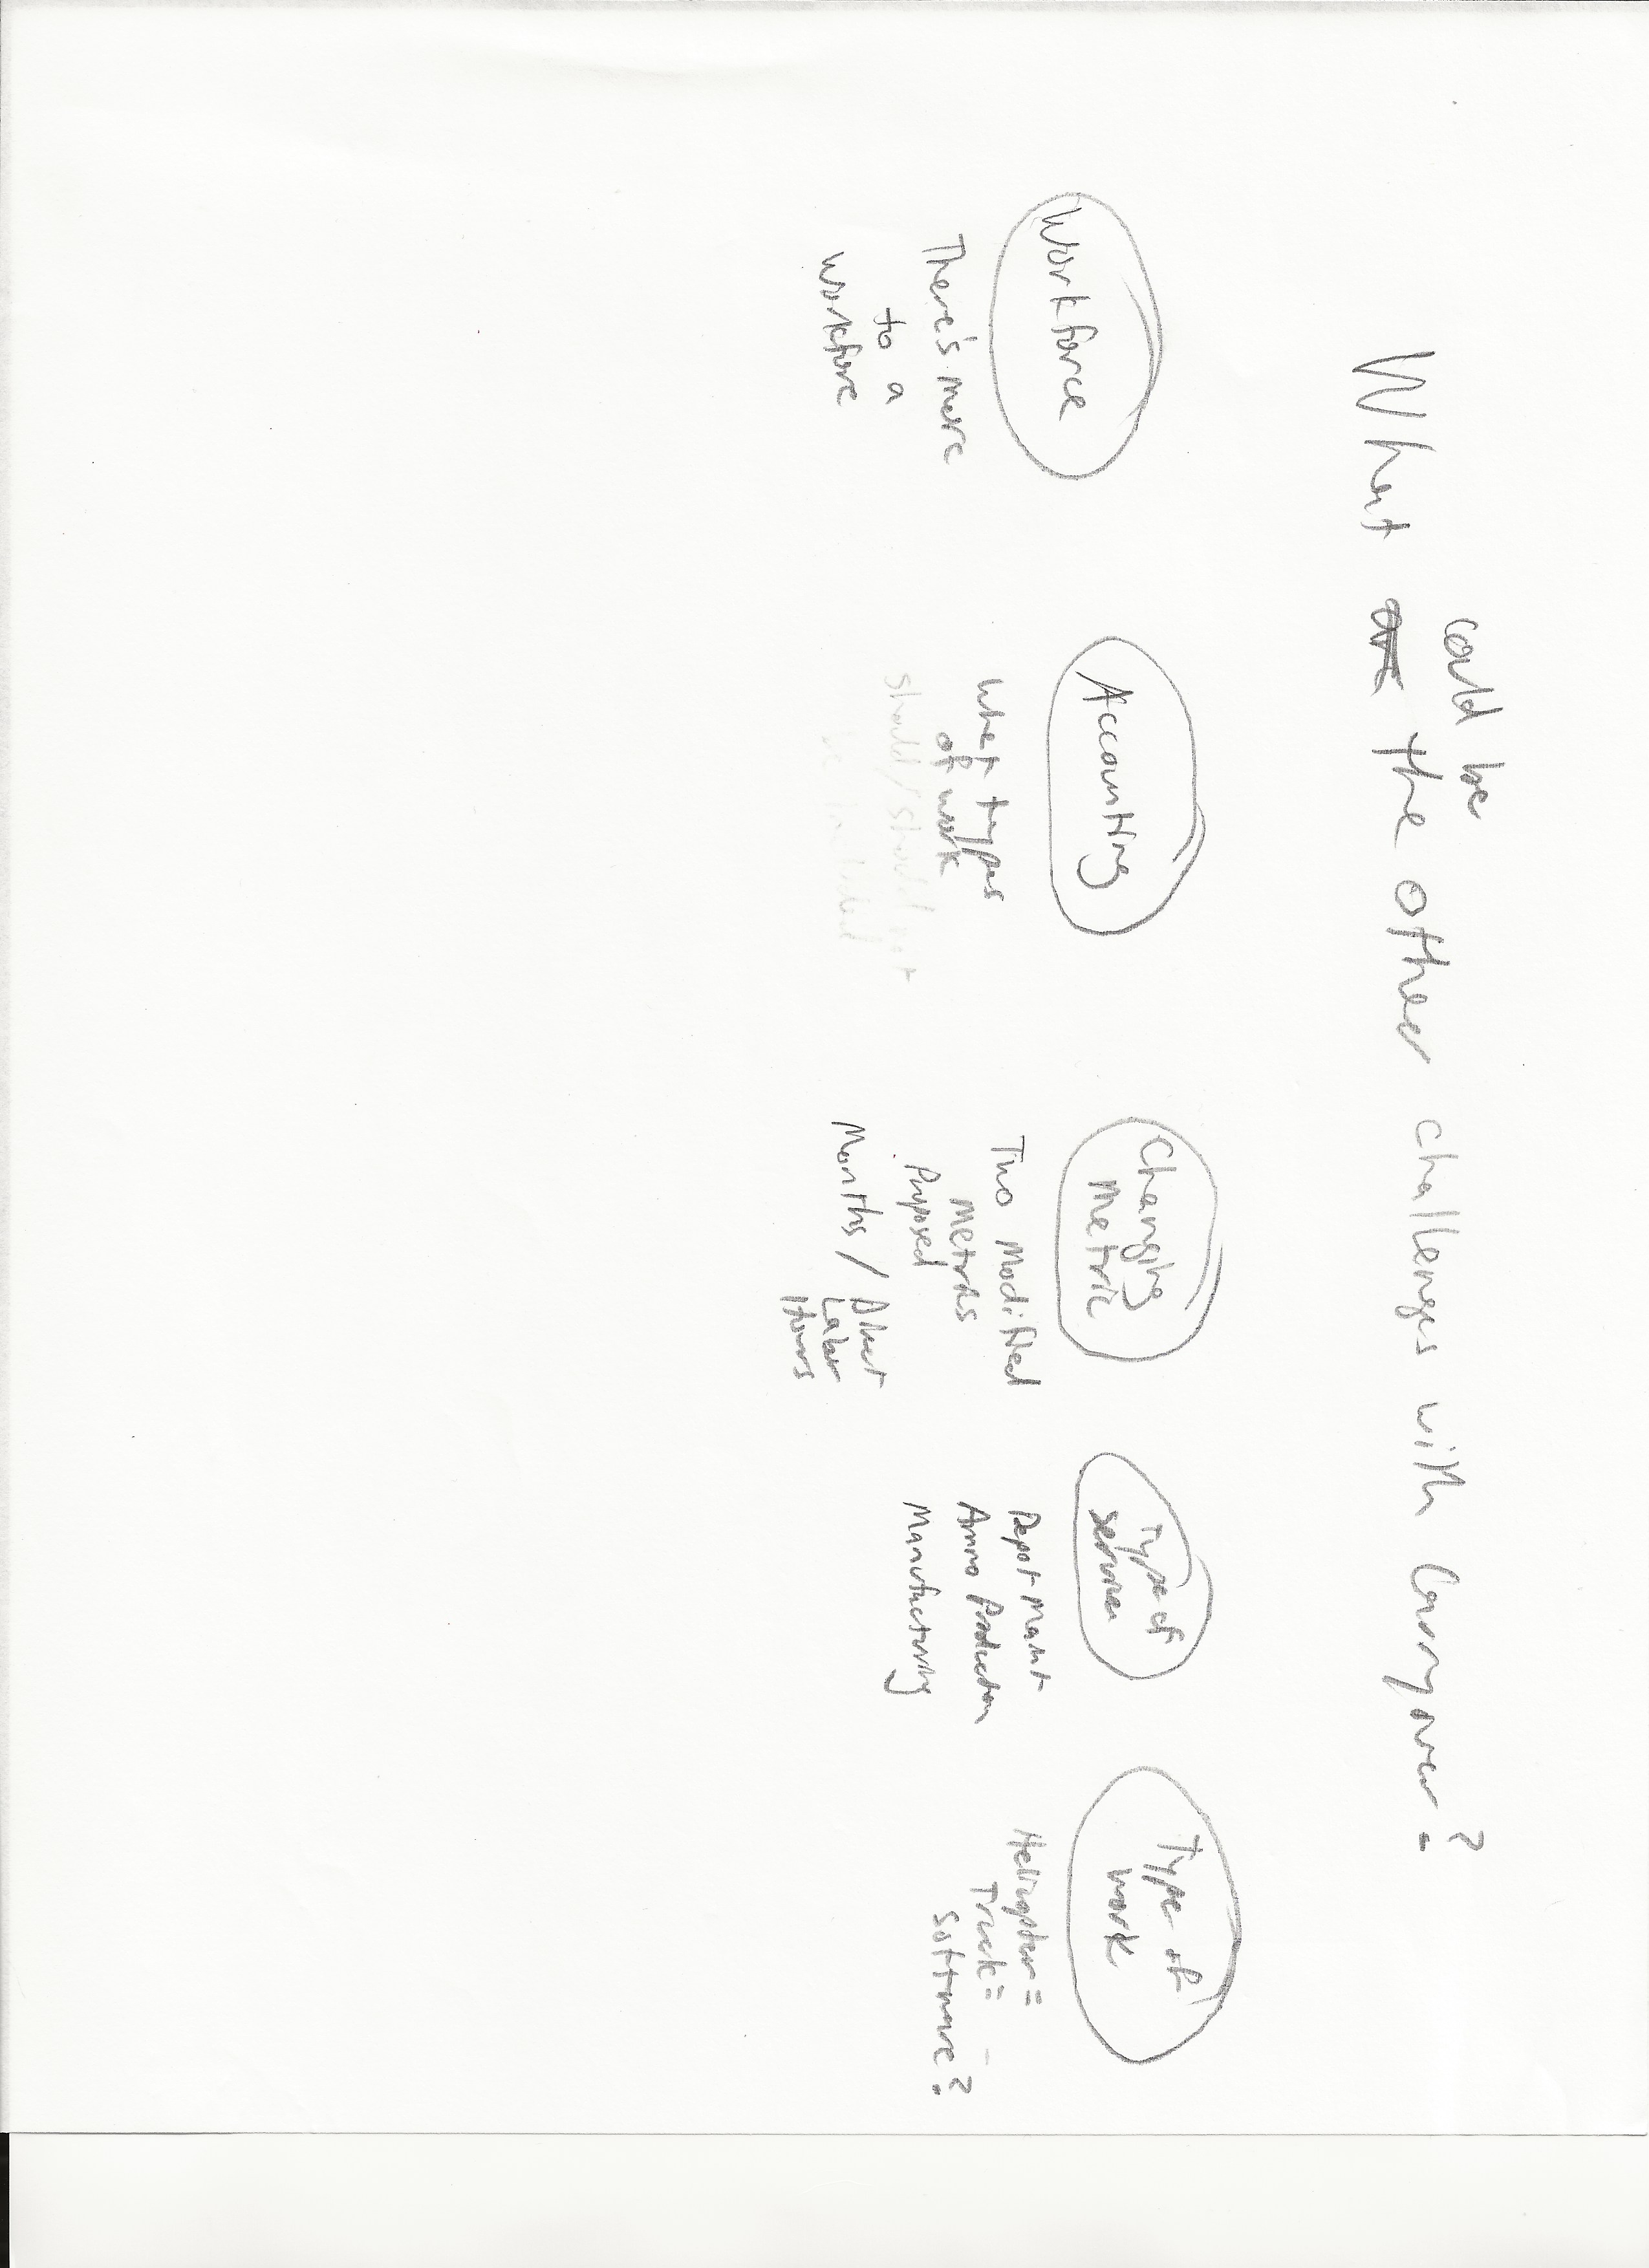 could be
What are the other challenges with Carryover?
Workforce
There's more
to a
workforce
Accounting
What types
of work
should/should not
be included
Changing
Metric
Two Modified
Metrics
Proposed
Months / Direct
Labor
Hours
Type of
service
Depot Maint
Ammo Production
Manufacturing
Type of
work
Helicopter =
Truck =
Software?